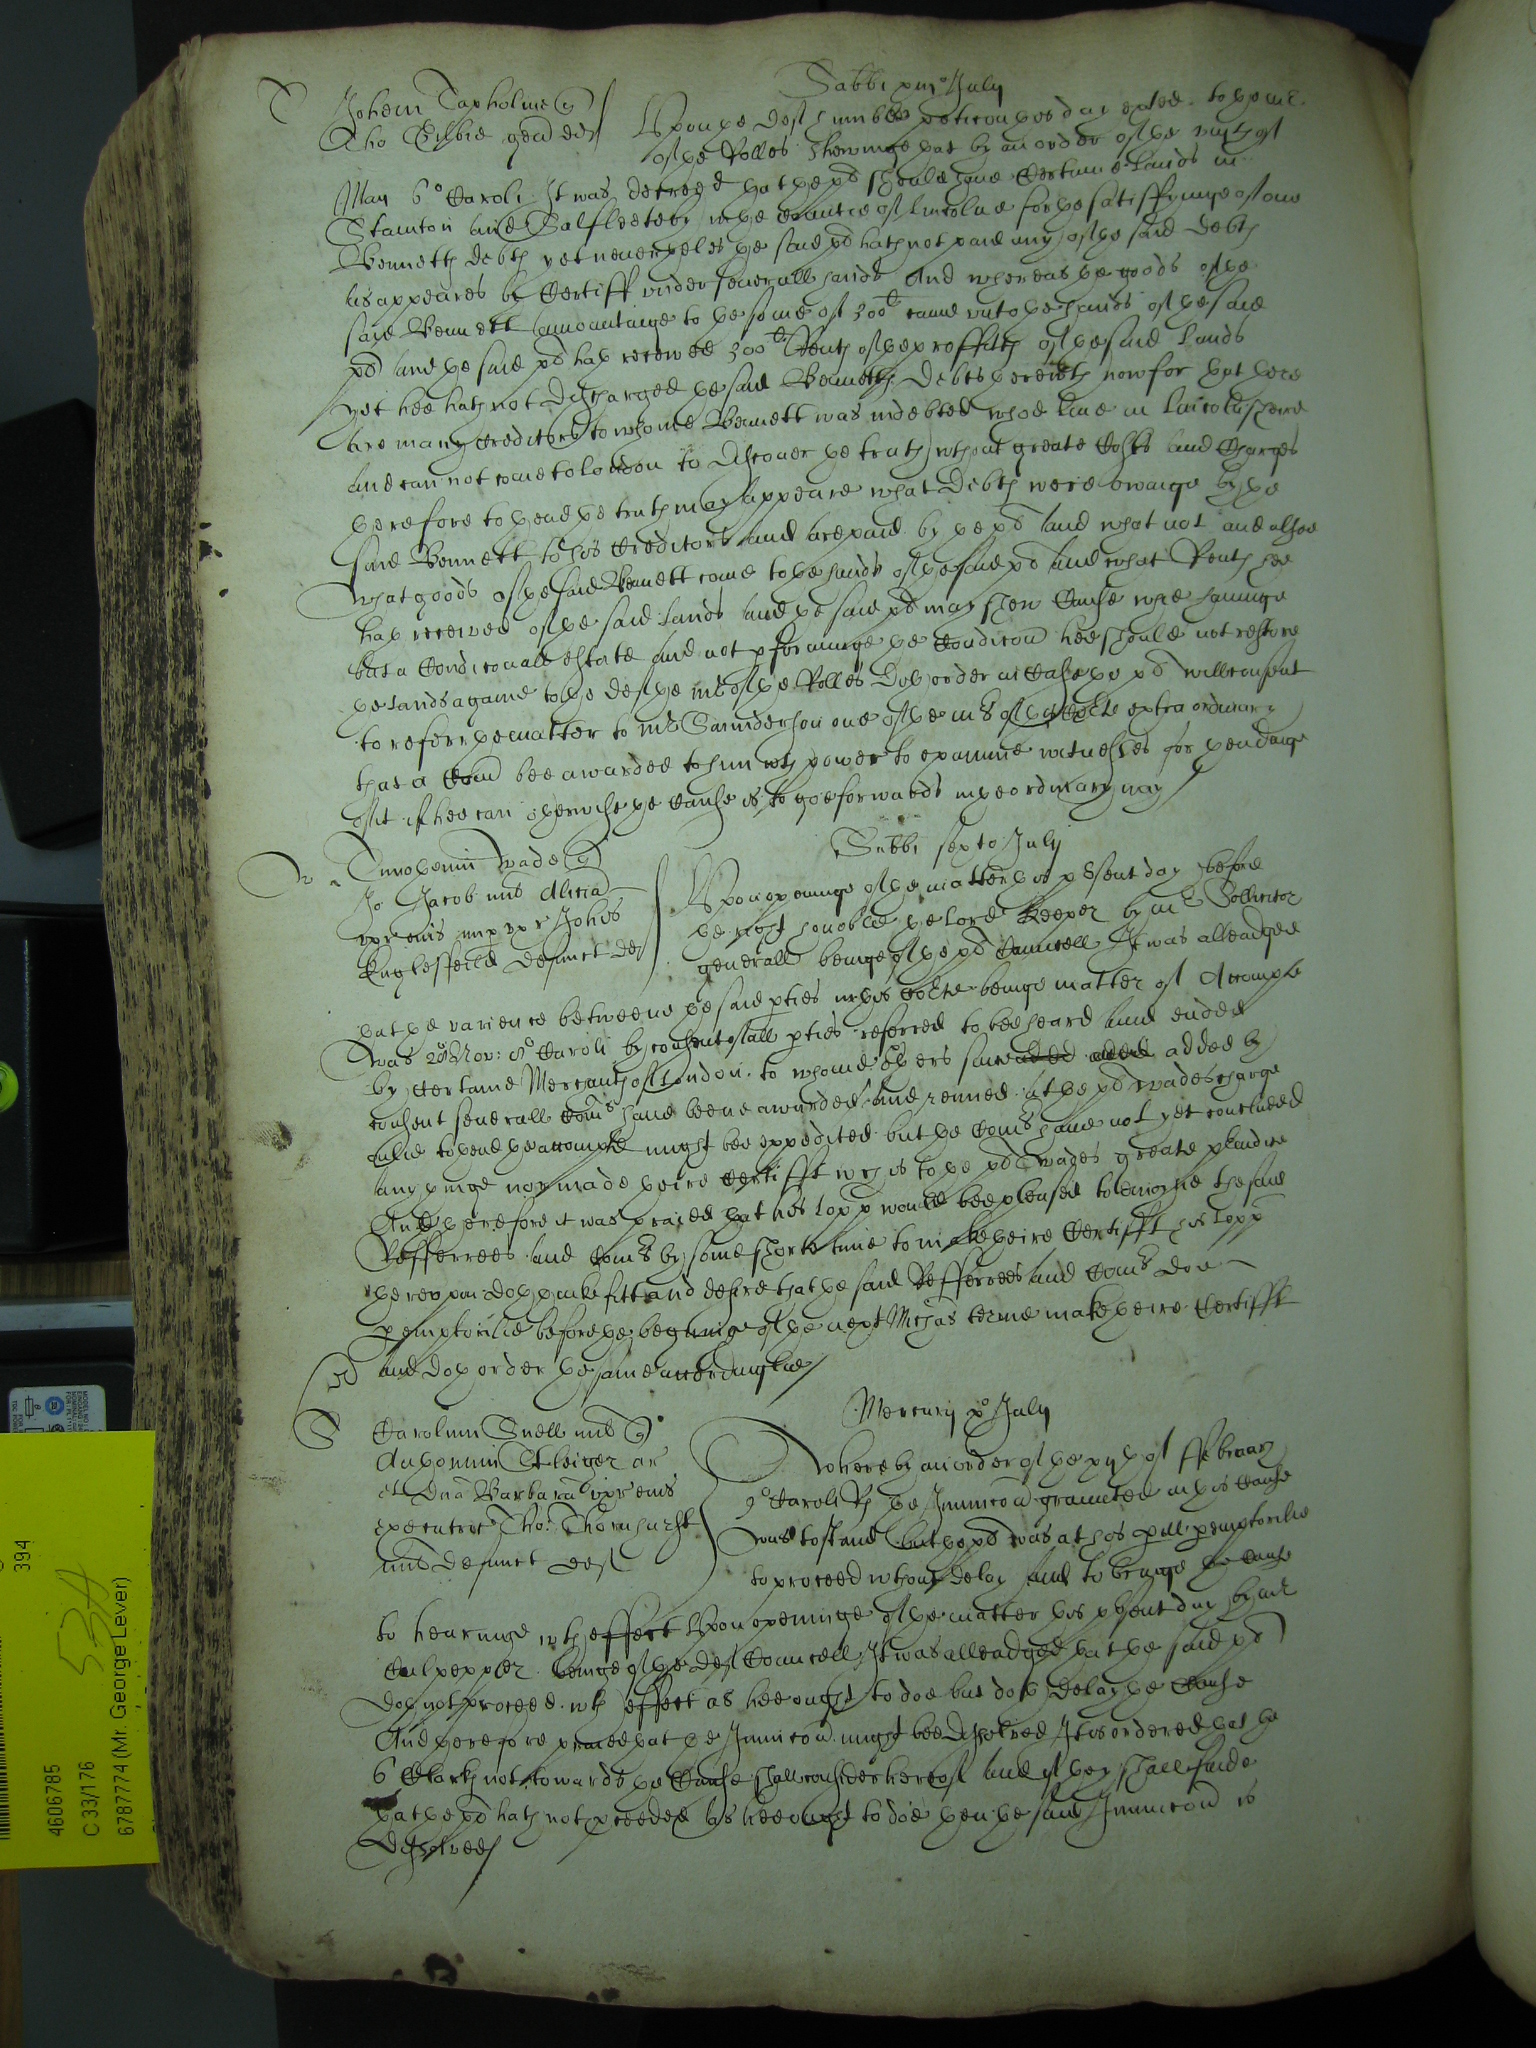 Sabbi xiij° July
T Johem Tapholme q
Tho Bilbie gen def
Upon the def humble peticon this day exhted to the mr
of the Rolles shewinge that by an order of the
May 6° Caroli It was decreed that the plt should have Certaine Lands in
Stainton and Salfleeteby in the Countie of Lincolne for the satisffyinge of one
Bennetts debts yet neverthelesse the said plt hath not paid any of the said debts
as appeares by Certiff under severall hands And whereas the goods of the
said Bennett amountinge to the some of 300li came unto the hands of the said
plt and the said plt hath received 300li Rents of the proffitts of the said Lands
yet hee hath not discharged the said Bennetts debts therewith now for that there
are many Creditors to whome Bennett was indebted whoe live in Lincolnshire
and can not come to London to discover the truth without great Costs and Charges
therefore to thend the truth may appeare what debts were owinge by the
said Bennett to his Creditors and are paid by the plt and what not and alsoe
what goods of the said Bennett came to the hands of the said plt and what Rents hee
hath received of the said lands and the said plt may shew Cause why havinge
but a Condiconall estate and not pforminge the Condicon hee should not restore
the lands againe to the def the mr of the Rolles doth order in Case the plt will consent
to referr the matter to mr Saunderson one of the mrs of this Corte extraordinary
that a Comn bee awarded to him wth power to examine witnesses for thendinge
of it if hee can otherwise the Cause is to goe forwards in the ordinary way
Sabbi sexto July
Timotheum Wade q
Jo Jacob mil Alicia
uxr eius nup uxr Johis
Englefeild defunct def
Upon openinge of the matter this psent day before
the right honoble the Lord Keeper by mr Sollicitor
generall beinge of the plt Councell It was alleadged
that the varience betweene the said pties in this Corte beinge matter of Accompte
was 28 Nov: 5° Caroli by consent of all pties referred to bee heard and ended
by Certaine Merchants of London to whome others since added by
consent severall Comns have beene awarded and renued at the plt Wades charge
onlie to thend the accompte might bee expedited but the Comrs have not yet concluded
any thinge nor made theire Certifft wch is to the plt Wades greate pIudice
And therefore it was praied that his Lopp would bee pleased to enioyne the said
Refferrees and Comrs by some shorte time to make theire Certifft his Lopp
thereupon doth thinke fitt and desire that the said Refferrees and Comrs doe
pemptorilie before the begining of the next Michas terme make theire Certifft
and doth order the same accordinglie
Mercurij x° July
S Carolum Snell mil q
Anthonium St leiger ar
et Dna Barbara uxr eius
executric Tho: Thornhurst
mil defunct def
Where by an order of the xijth of ffebruary
9° Caroli Rs the Iniuncon graunted in this Cause
was to stand but the plt was at his perill pemptorilie
to proceed wthout delay and to bringe the Cause
to hearinge with effect Upon openinge of the matter this psent day by mr
Culpepper beinge of the def Councell It was alleadged that the said plt
doth not proceed wth effect as hee ought to doe but doth delay the Cause
And therefore praied that the Iniuncon might bee dissolved It is ordered that the
6 Clarks not towards the Cause shall consider hereof and if they shall finde
that the plt hath not pceeded as hee ought to doe then the said Iniuncon is
dissolved
394
53A
4606785
C 33/176
6787774 (Mr. George Lever)